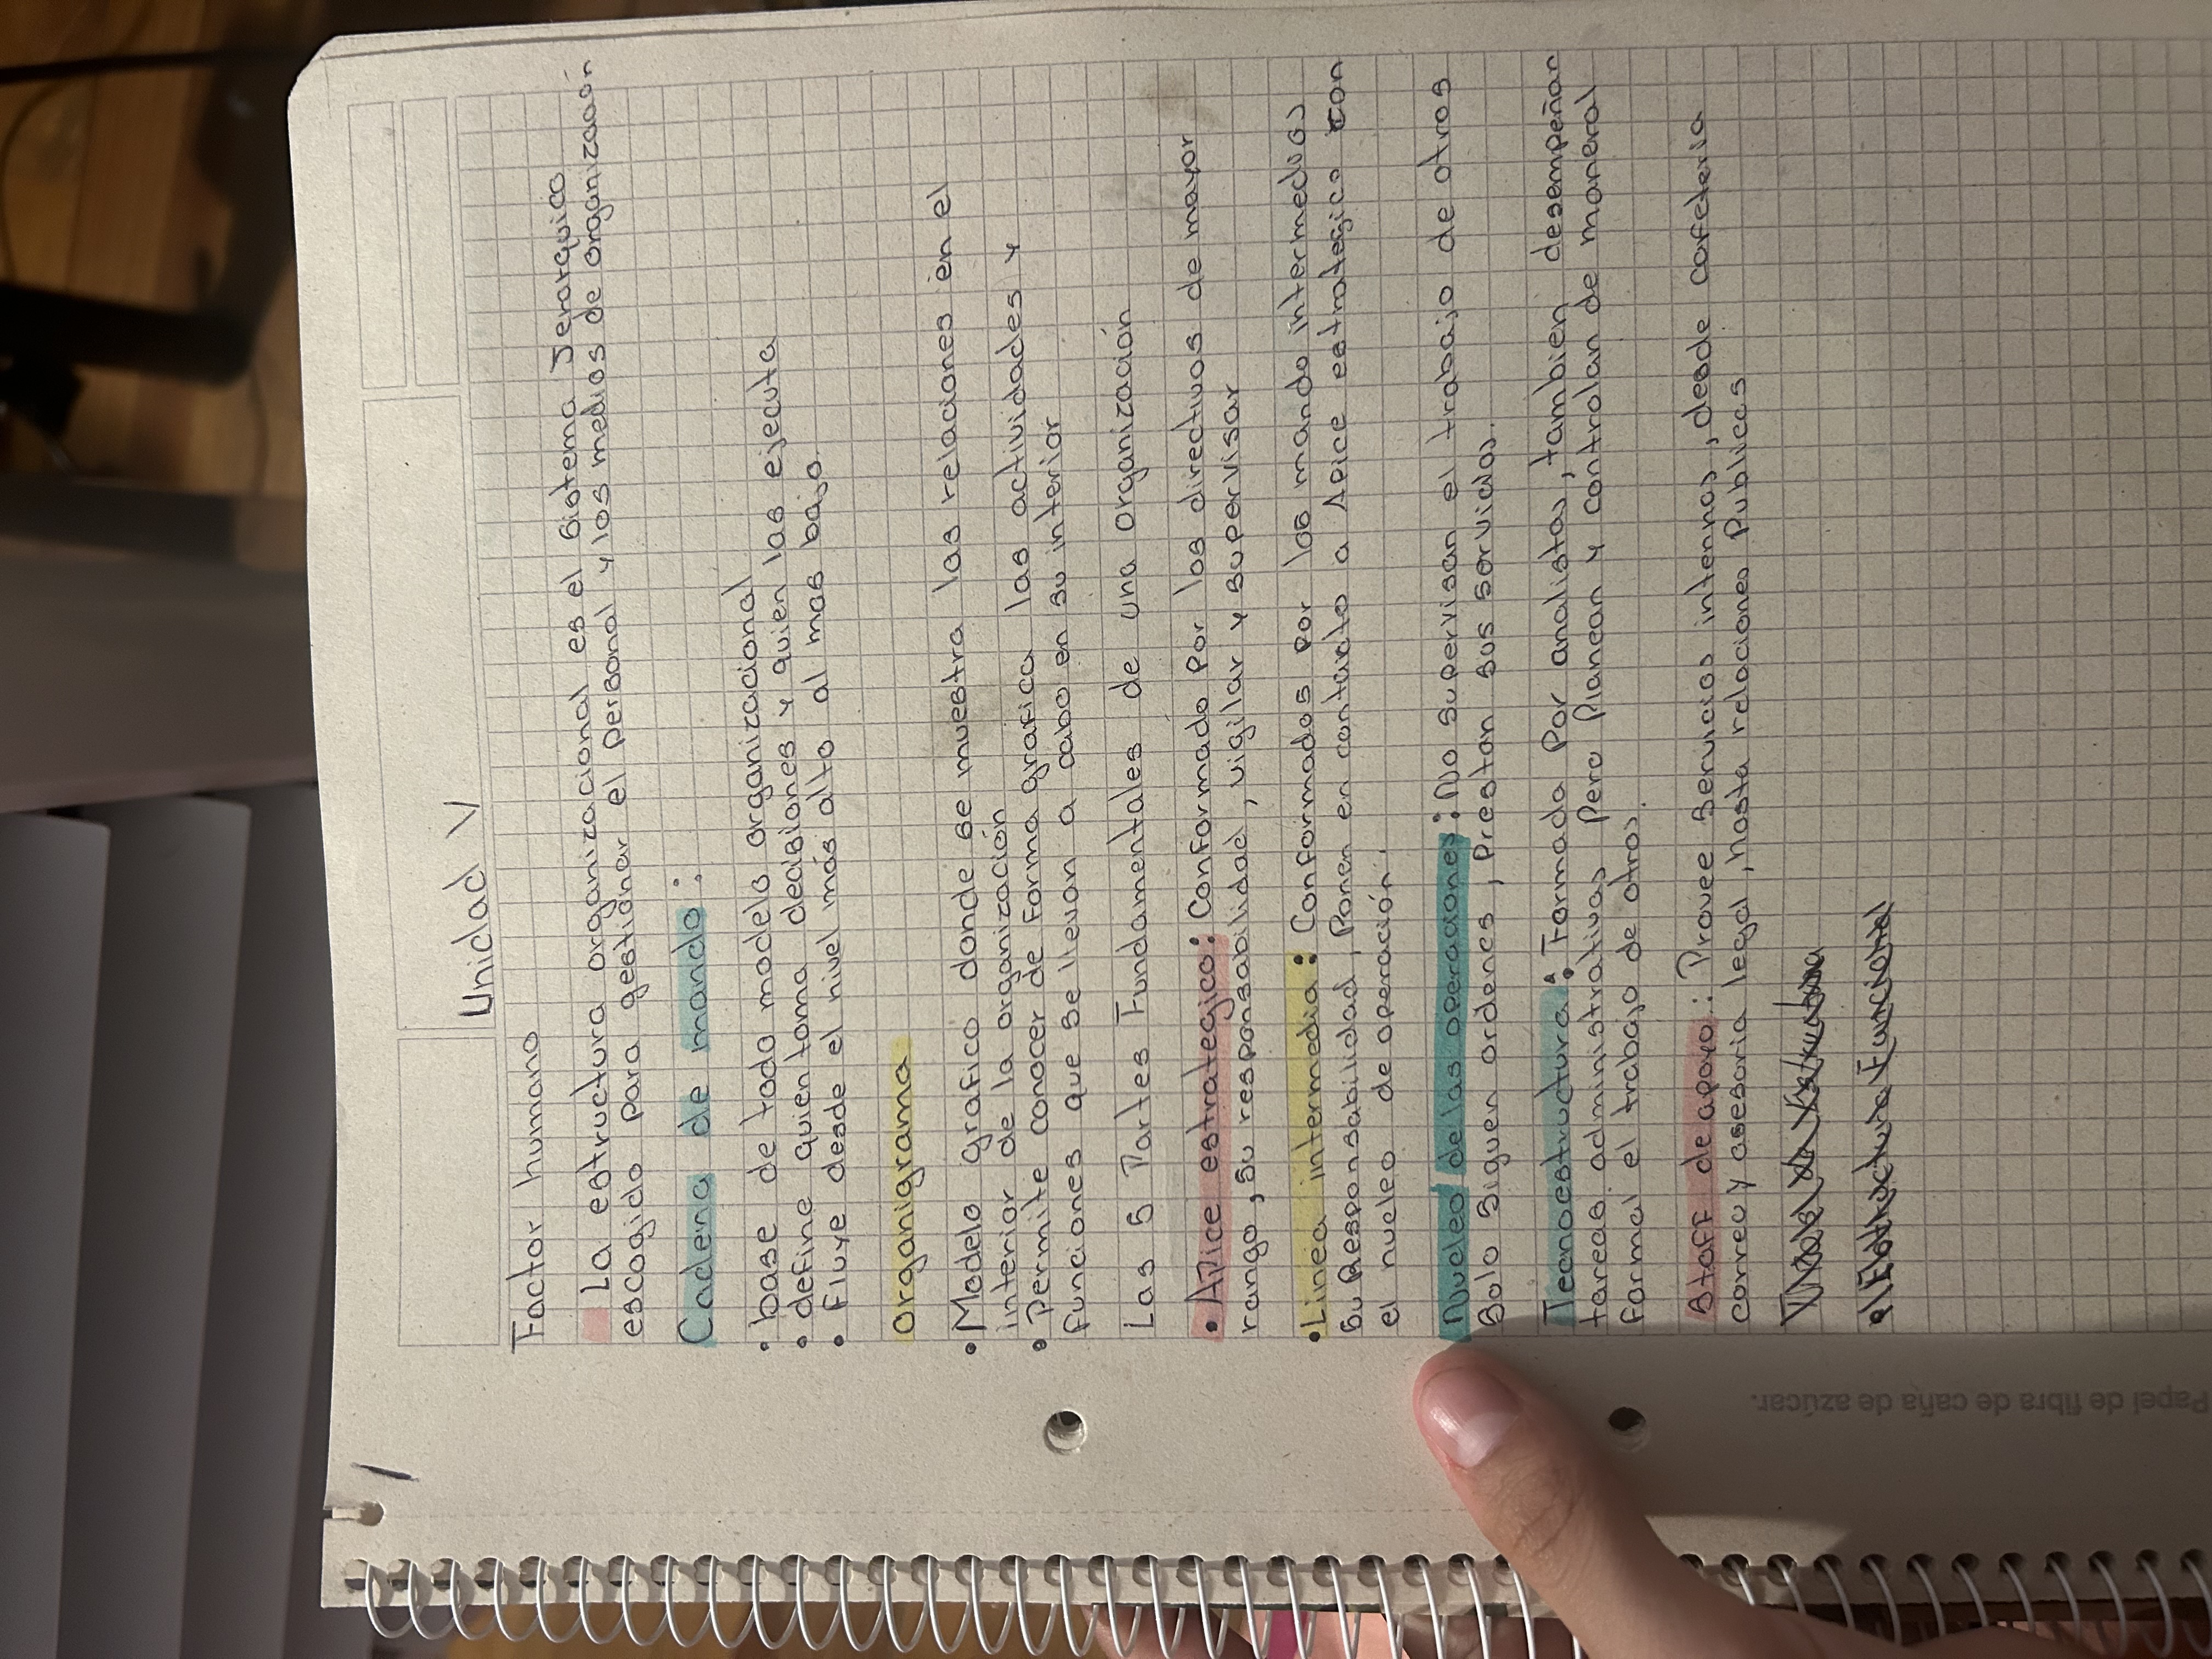 Unidad V
Factor humano
La estructura organizacional es el sistema Jerarquico
escogido para gestionar el personal y los medios de organización
Cadena de mando:
• base de todo modelo organizacional
• define quien toma decisiones y quien las ejecuta
• Fluye desde el nivel más alto al mas bajo.
Organigrama
• Modelo grafico donde se muestra las relaciones en el
interior de la organización
• Permite conocer de forma grafica las actividades y
funciones que se llevan a cabo en su interior
Las 5 Partes Fundamentales de una organización
• Apice estrategico: Conformado por los directivos de mayor
rango, su responsabilidad, vigilar y supervisar
• Linea intermedia: Conformados por los mando intermedios
su Responsabilidad, Ponen en contacto a Apice estrategico con
el nucleo de operación.
Nucleo de las operaciones: No supervisan el trabajo de otros
solo siguen ordenes, Prestan sus servicios.
Tecnoestructura: Formada por analistas, tambien desempeñan
tareas administrativas pero Planean y controlan de manera
formal el trabajo de otros.
Staff de apoyo: Provee servicios internos, desde cafeteria
correo y asesoria legal, hasta relaciones Publicas
Papel de fibra de caña de azúcar.